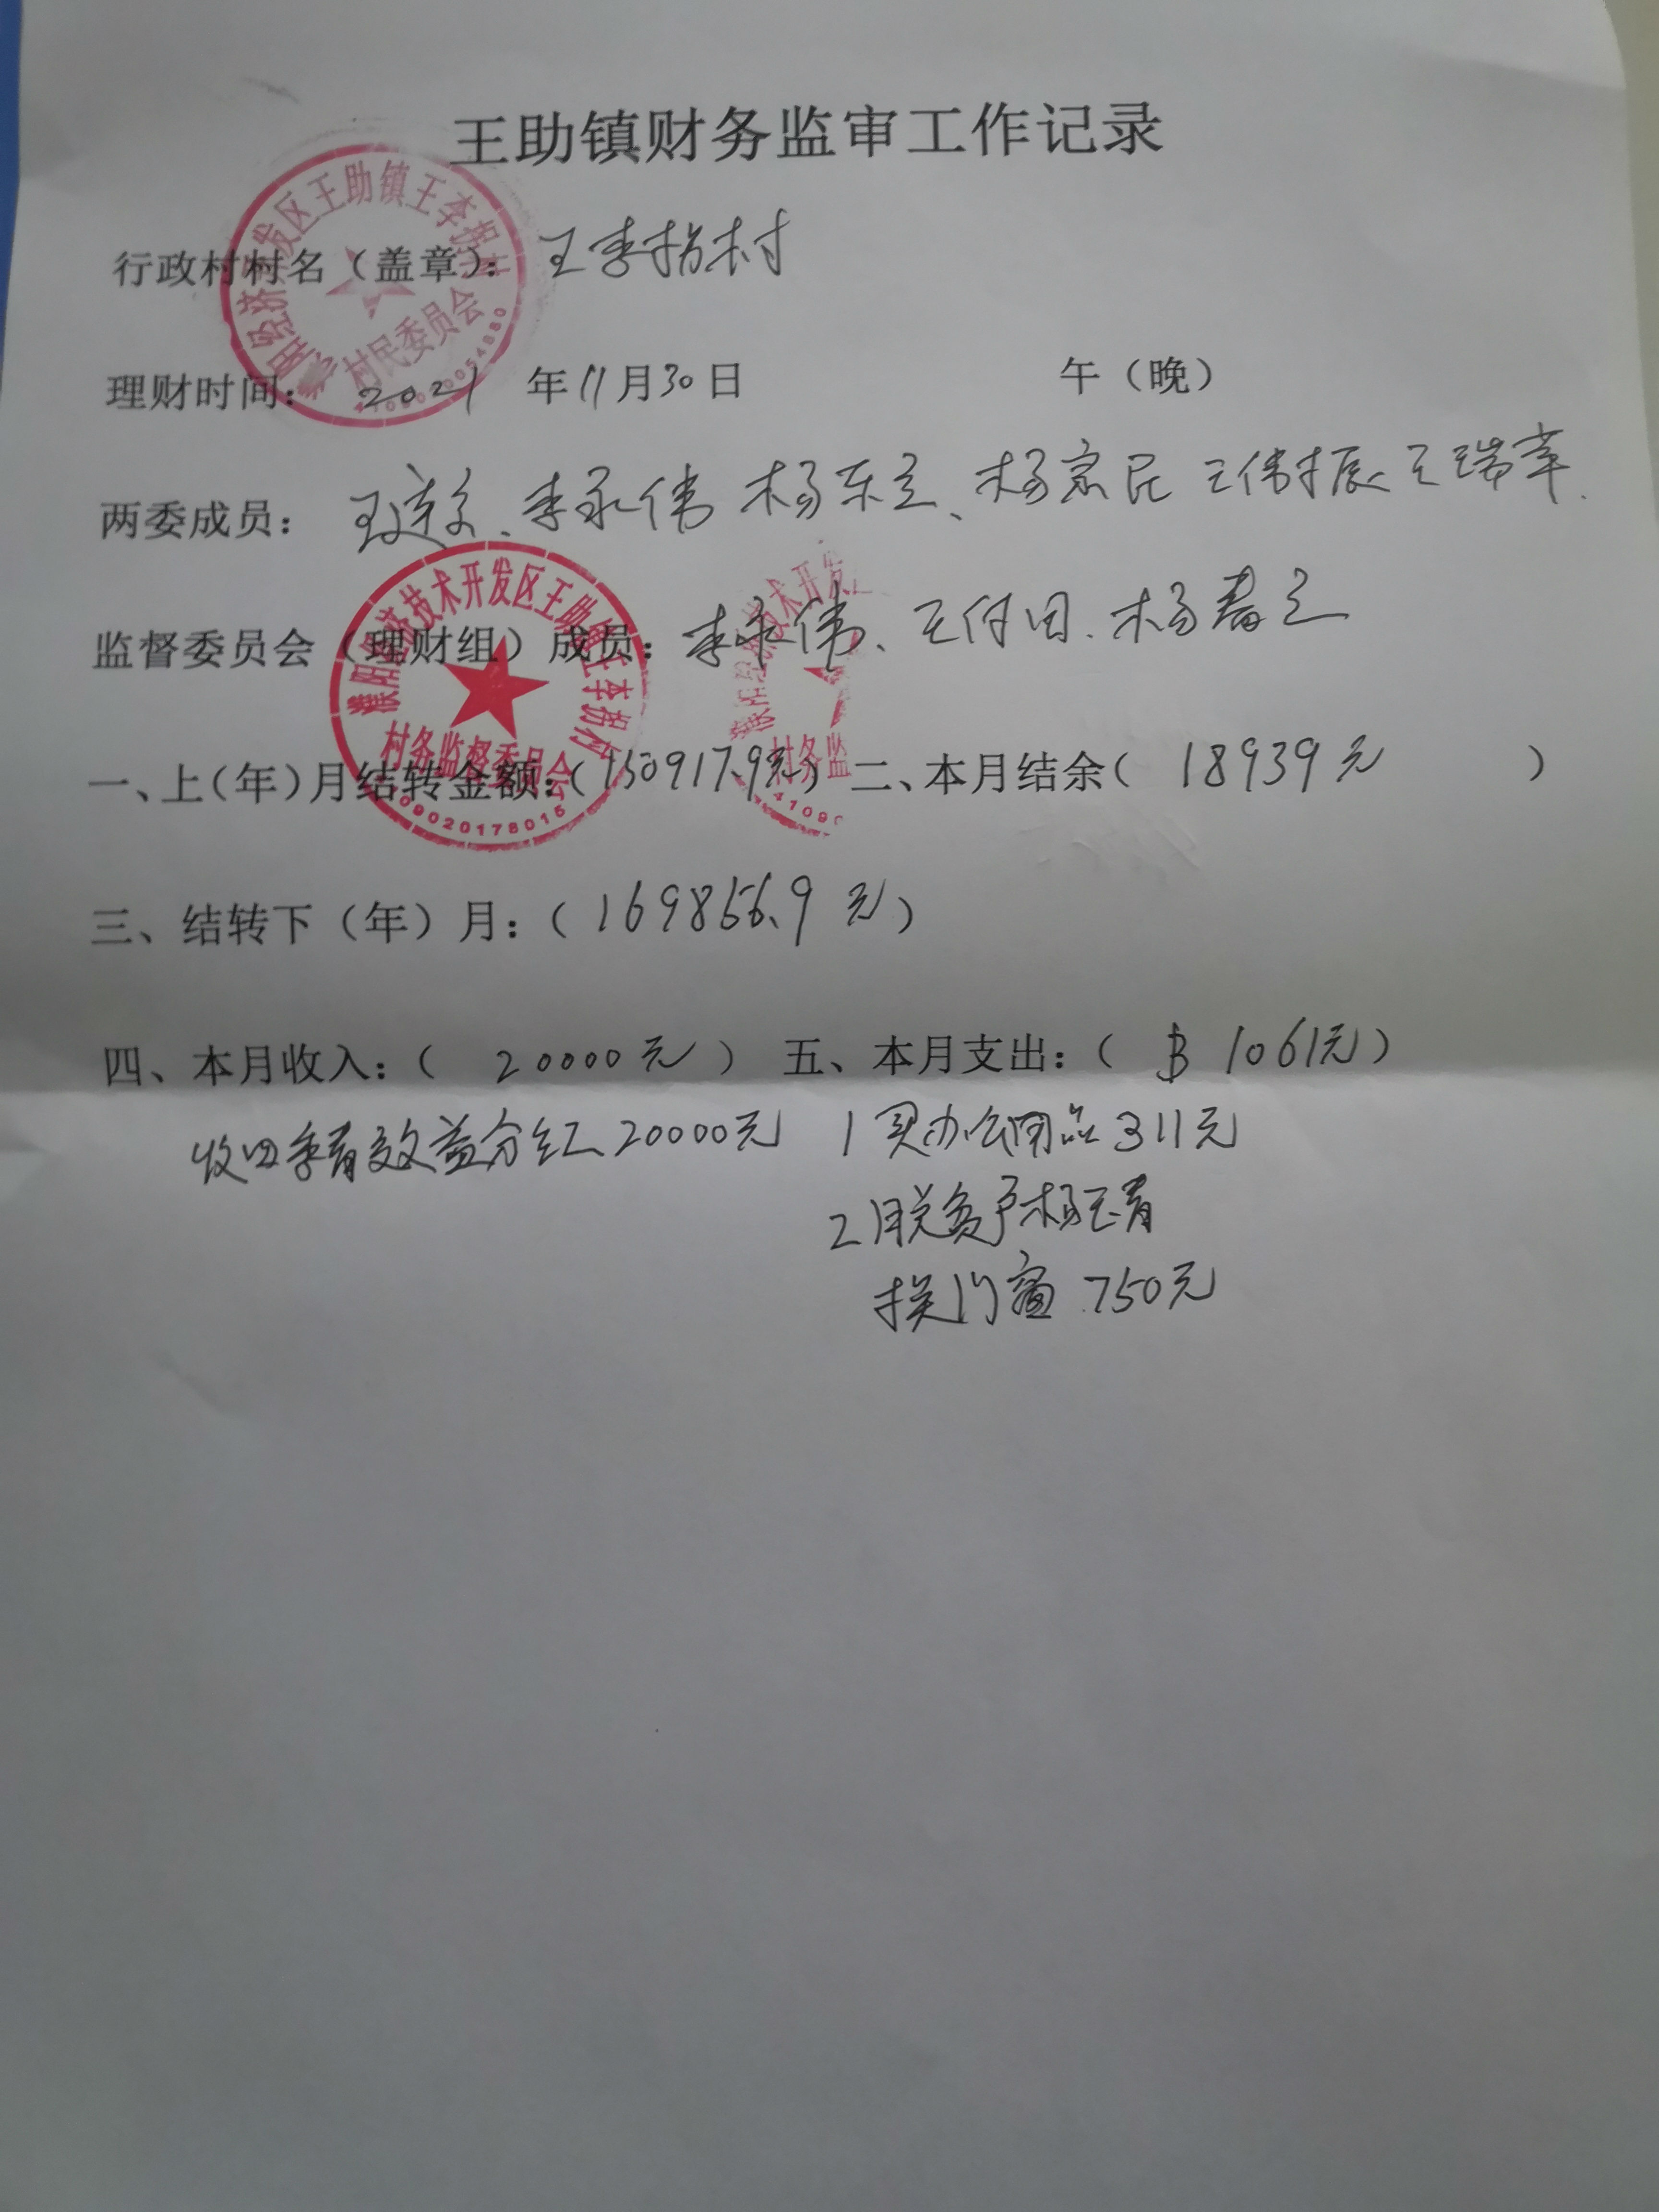 王助镇财务监审工作记录
行政村村名（盖章）：王李拐村
理财时间：2021年11月30日 午（晚）
两委成员： 李永伟 杨东立、杨宗民 王伟振 王瑞苹
监督委员会（理财组）成员：李永伟、王付田、杨春立
一、上（年）月结转金额：（150917.9元） 二、本月结余（18939元）
三、结转下（年）月：（169856.9元）
四、本月收入：（20000元） 五、本月支出：（1061元）
收四季青效益分红20000元 1买办公用品311元
2脱贫户杨玉青
换门窗750元
经济 发区王助镇王李拐村
村民委员会
濮阳经济技术开发区王助镇王李拐村
村务监督委员会
4109020178015
濮阳经济技术开发
村务监
41090